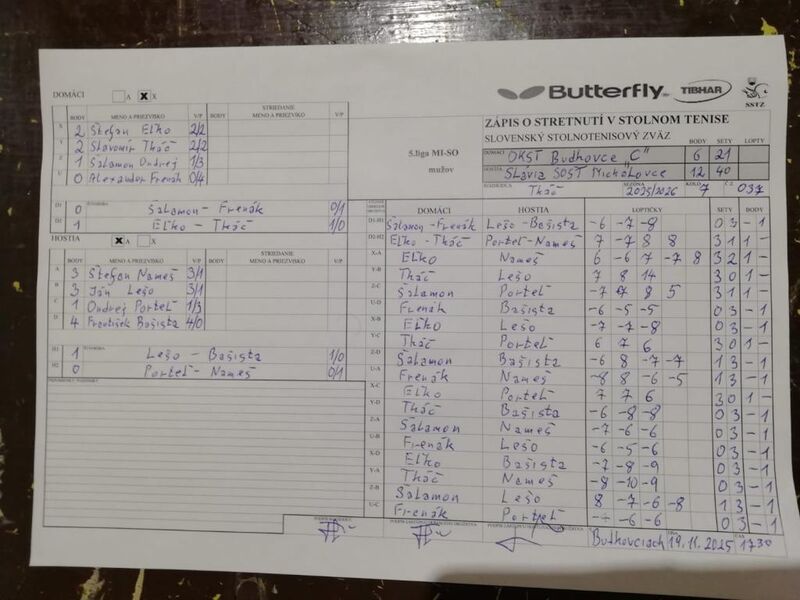 DOMÁCI A X X
Butterfly TIBHAR SSTZ
BODY MENO A PRIEZVISKO V/P BODY STRIEDANIE MENO A PRIEZVISKO V/P
X 2 Štefan Eľko 2/2
Y 2 Slavomír Tkáč 2/2
Z 1 Salamon Ondrej 1/3
U 0 Alexander Frenák 0/4
D1 0 Salamon - Frenák 0/1
D2 1 Eľko - Tkáč 1/0
ZÁPIS O STRETNUTÍ V STOLNOM TENISE
SLOVENSKÝ STOLNOTENISOVÝ ZVÄZ BODY SETY LOPTY
5.liga MI-SO
mužov
DOMÁCI OKST Budkovce "C" 6 21
HOSTIA Slávia SOŠT Michalovce 12 40
ROZHODCA Tkáč SEZÓNA 2025/2026 KOLO 7 Č.Z. 037
HOSTIA X A X
BODY MENO A PRIEZVISKO V/P BODY STRIEDANIE MENO A PRIEZVISKO V/P
A 3 Štefan Nameš 3/1
B 3 Ján Lešo 3/1
C 1 Ondrej Porteľ 1/3
D 4 František Bašista 4/0
H1 1 Lešo - Bašista 1/0
H2 0 Porteľ - Nameš 0/1
DOMÁCI HOSTIA LOPTIČKY SETY BODY
D1-H1 Salamon - Frenák Lešo - Bašista -6 -7 -8 0 3 - 1
D2-H2 Eľko - Tkáč Porteľ - Nameš 7 -7 8 8 3 1 1 -
X-A Eľko Nameš 6 -6 7 -7 8 3 2 1 -
Y-B Tkáč Lešo 7 8 14 3 0 1 -
Z-C Salamon Porteľ -7 8 5 3 1 1 -
U-D Frenák Bašista -6 -5 -5 0 3 - 1
X-B Eľko Lešo -7 -7 -8 0 3 - 1
Y-C Tkáč Porteľ 6 7 6 3 0 1 -
Z-D Salamon Bašista -6 8 -7 -7 1 3 - 1
U-A Frenák Nameš -8 8 -6 -5 1 3 - 1
X-C Eľko Porteľ 7 7 6 3 0 1 -
Y-D Tkáč Bašista -6 -8 -8 0 3 - 1
Z-A Salamon Nameš -7 -6 -6 0 3 - 1
U-B Frenák Lešo -6 -5 -6 0 3 - 1
X-D Eľko Bašista -7 -8 -9 0 3 - 1
Y-A Tkáč Nameš -8 -10 -9 0 3 - 1
Z-B Salamon Lešo 8 -7 -6 -8 1 3 - 1
U-C Frenák Porteľ -6 -6 0 3 - 1
Budkovciach 19.11.2025 17 30